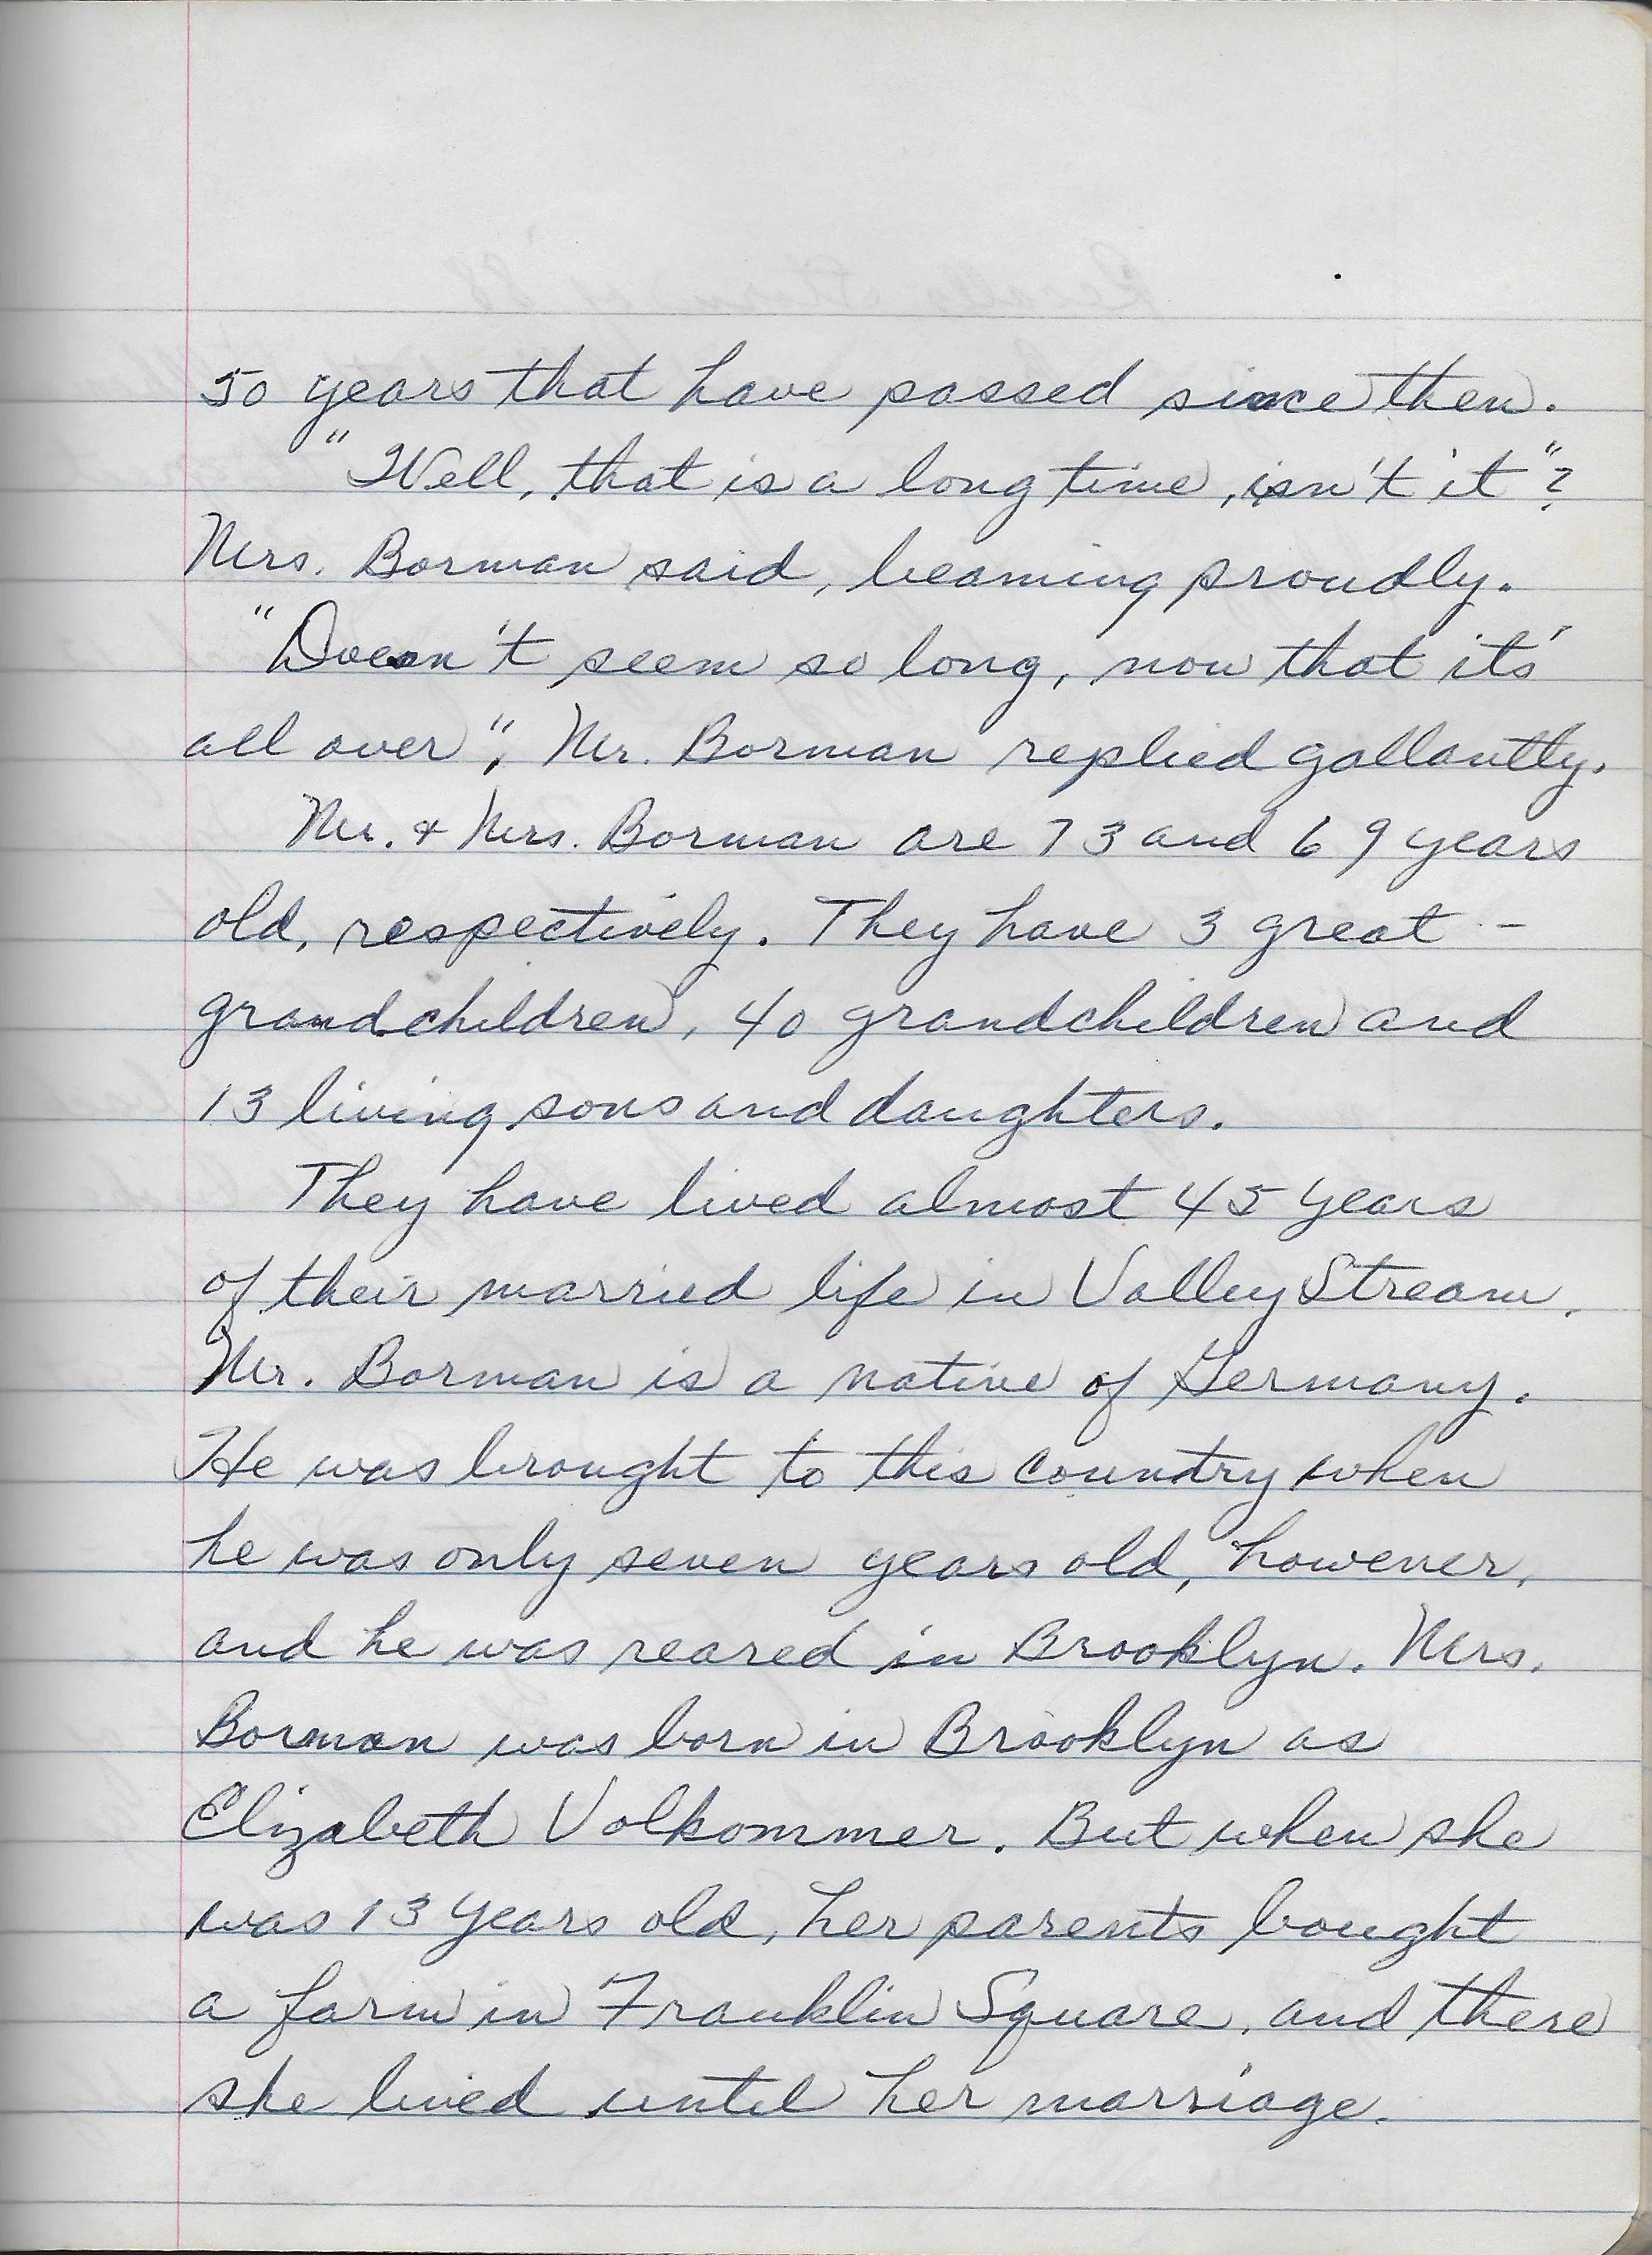 50 years that have passed since then.
"Well, that is a long time, isn't it"?
Mrs. Borman said, beaming proudly.
"Doesn't seem so long, now that it's
all over", Mr. Borman replied gallantly.
Mr. & Mrs. Borman are 73 and 69 years
old, respectively. They have 3 great-
grandchildren, 40 grandchildren and
13 living sons and daughters.
They have lived almost 45 years
of their married life in Valley Stream.
Mr. Borman is a native of Germany.
He was brought to this country when
he was only seven years old, however,
and he was reared in Brooklyn. Mrs.
Borman was born in Brooklyn as
Elizabeth Volkommer. But when she
was 13 years old, her parents bought
a farm in Franklin Square, and there
she lived until her marriage.